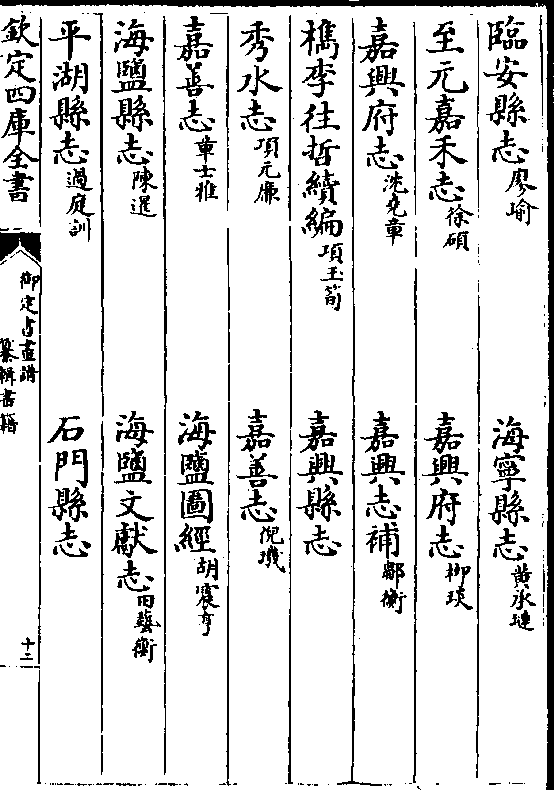 臨安縣志廖瑜　海寧縣志黄承璉
至元嘉禾志徐碩　嘉興府志柳琰
嘉興府志沈堯章　嘉興志補鄒衡
檇李往哲續編項玉筍　嘉興縣志
秀水志項元㢘　嘉善志倪璣
嘉善志章士雅　海鹽圖經胡震亨
海鹽縣志陳選　海鹽文獻志田藝衡
平湖縣志過庭訓　石門縣志
欽定四庫全書
御定書畫譜
纂輯書籍
十二